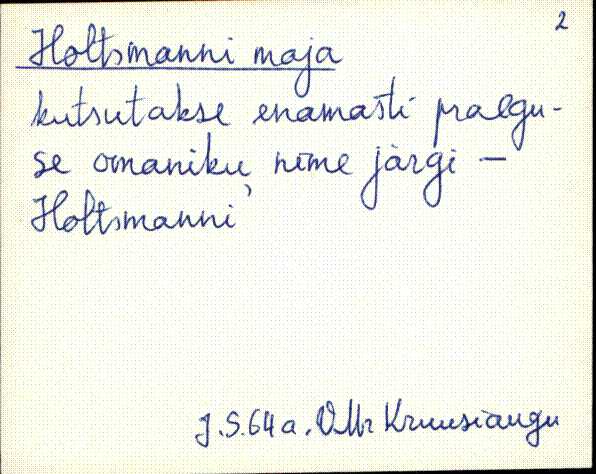 2
Holtsmanni maja
kutsutakse enamasti praegu-
se omaniku nime järgi —
Holtsmanni
J.S. 64 a. VMr Kruusiaugu